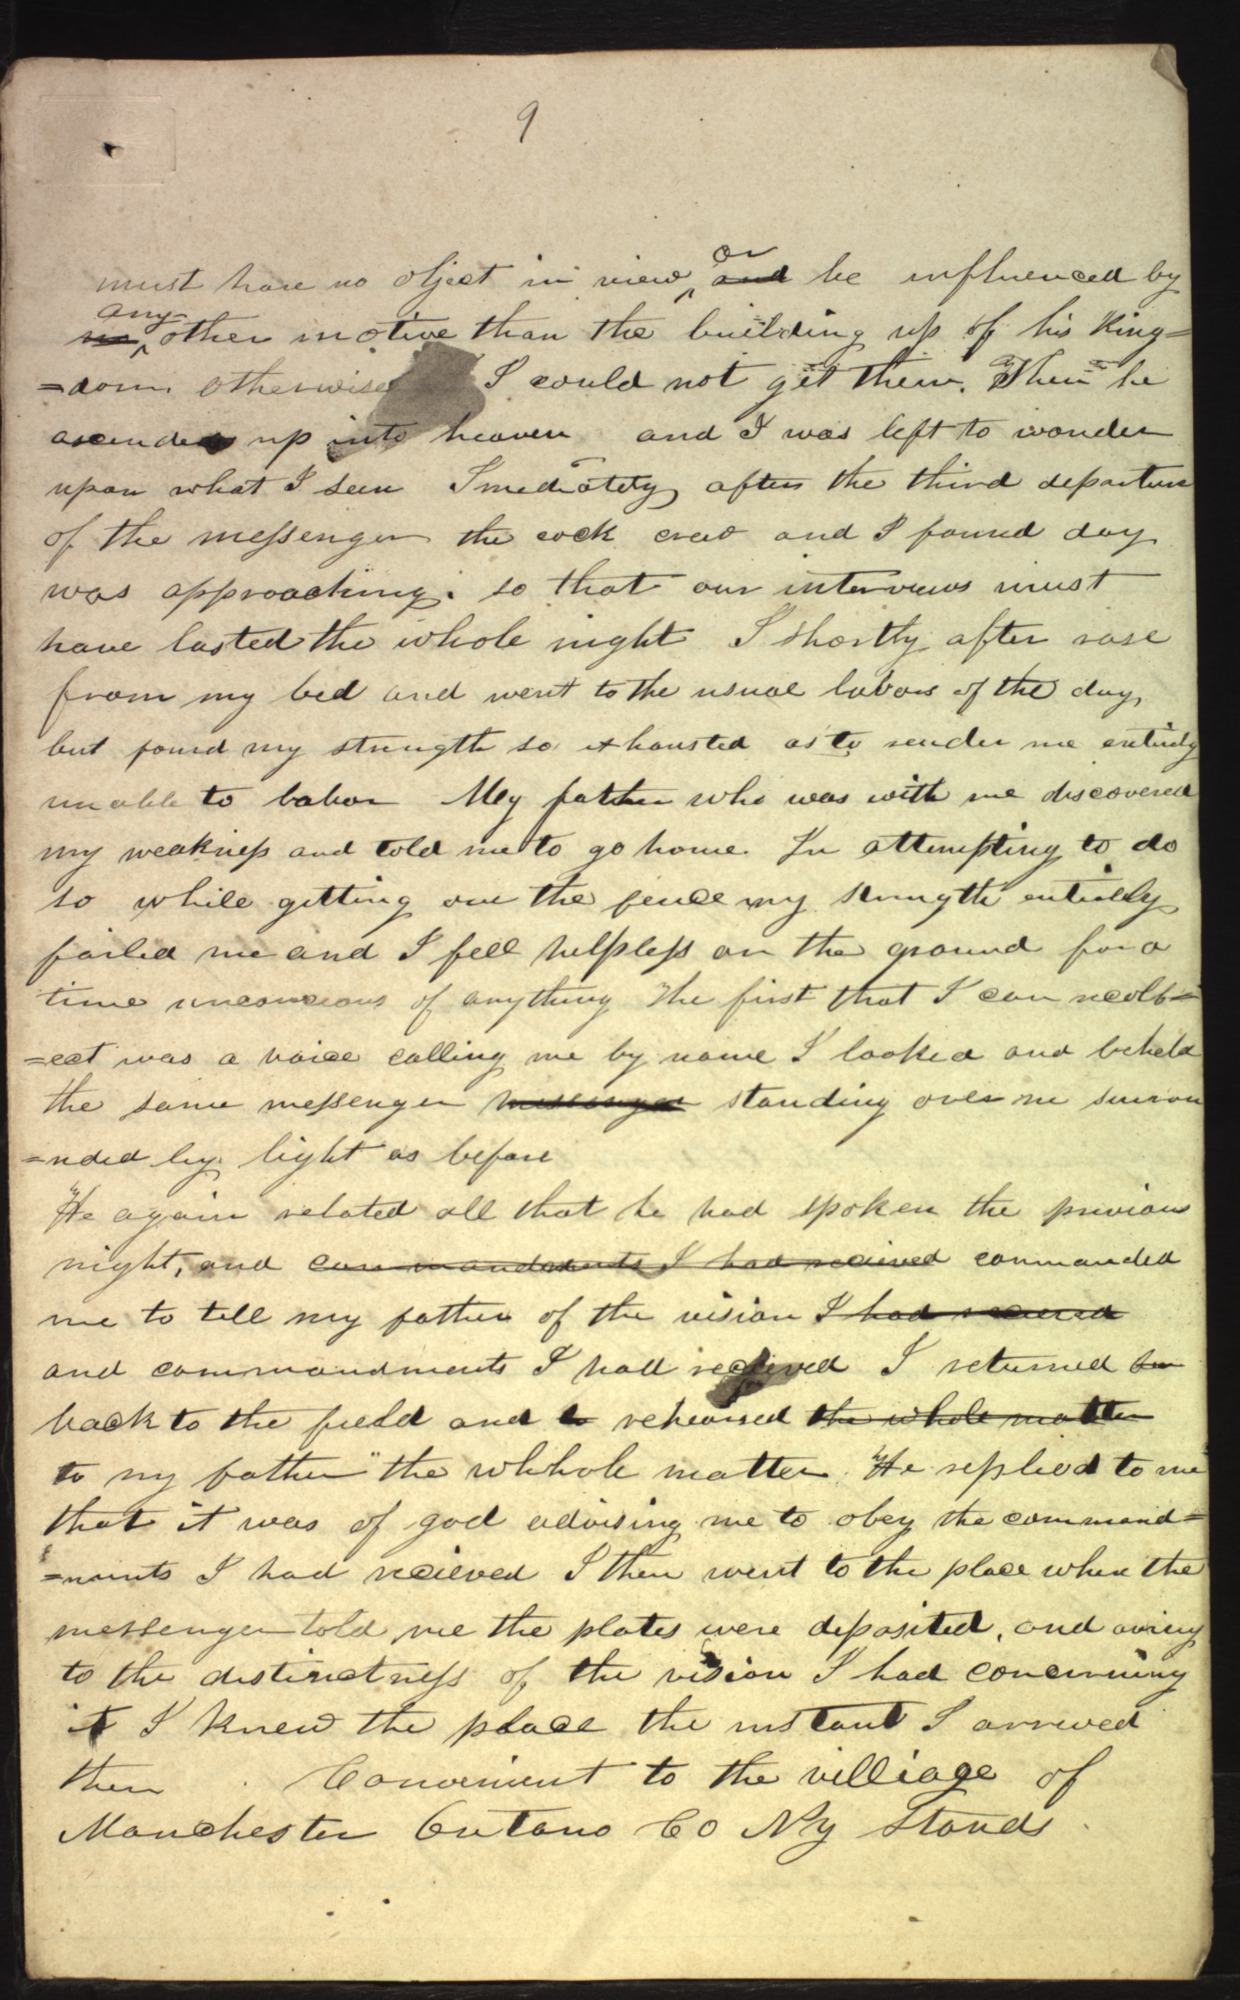 9
or
must have no object in view, and be influenced by
any
no other motive than the building up of his King=
=dom. otherwise I could not get them. Then he
ascended up into heaven and I was left to wonder
upon what I seen Imediately after the third departure
of the messenger the cock crew and I found day
was approaching. so that our interviews must
have lasted the whole night I shortly after rose
from my bed and went to the usual labors of the day,
but found my strength so exhausted as to render me entirely
unable to labor My father who was with me discovered
my weakness and told me to go home. In attempting to do
so while getting over the fence my strength entirely
failed me and I fell helpless on the ground for a
time unconscious of anything The first that I can recoll=
=ect was a voice calling me by name I looked and beheld
the same messenger messenger standing over me surrou
=nded by light as before
He again related all that he had spoken the previous
night, and commandments I had recieved commanded
me to tell my father of the vision I had recieved
and commandments I had recieved I returned
back to the field and rehearsed the whole matter
to my father "the whhole matter. He replied to me
that it was of god advising me to obey the command=
=ments I had recieved I then went to the place where the
messenger told me the plates were deposited, and owing
to the distinctness of the vision I had concerning
it I knew the place the instant I arrived
there . Convenient to the villiage of
Manchester Ontario Co Ny Stands.